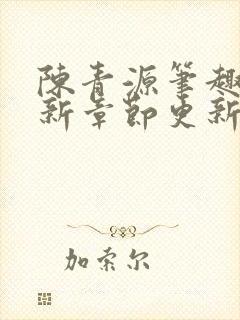 陳青源筆趣
新章節更新
加索尔